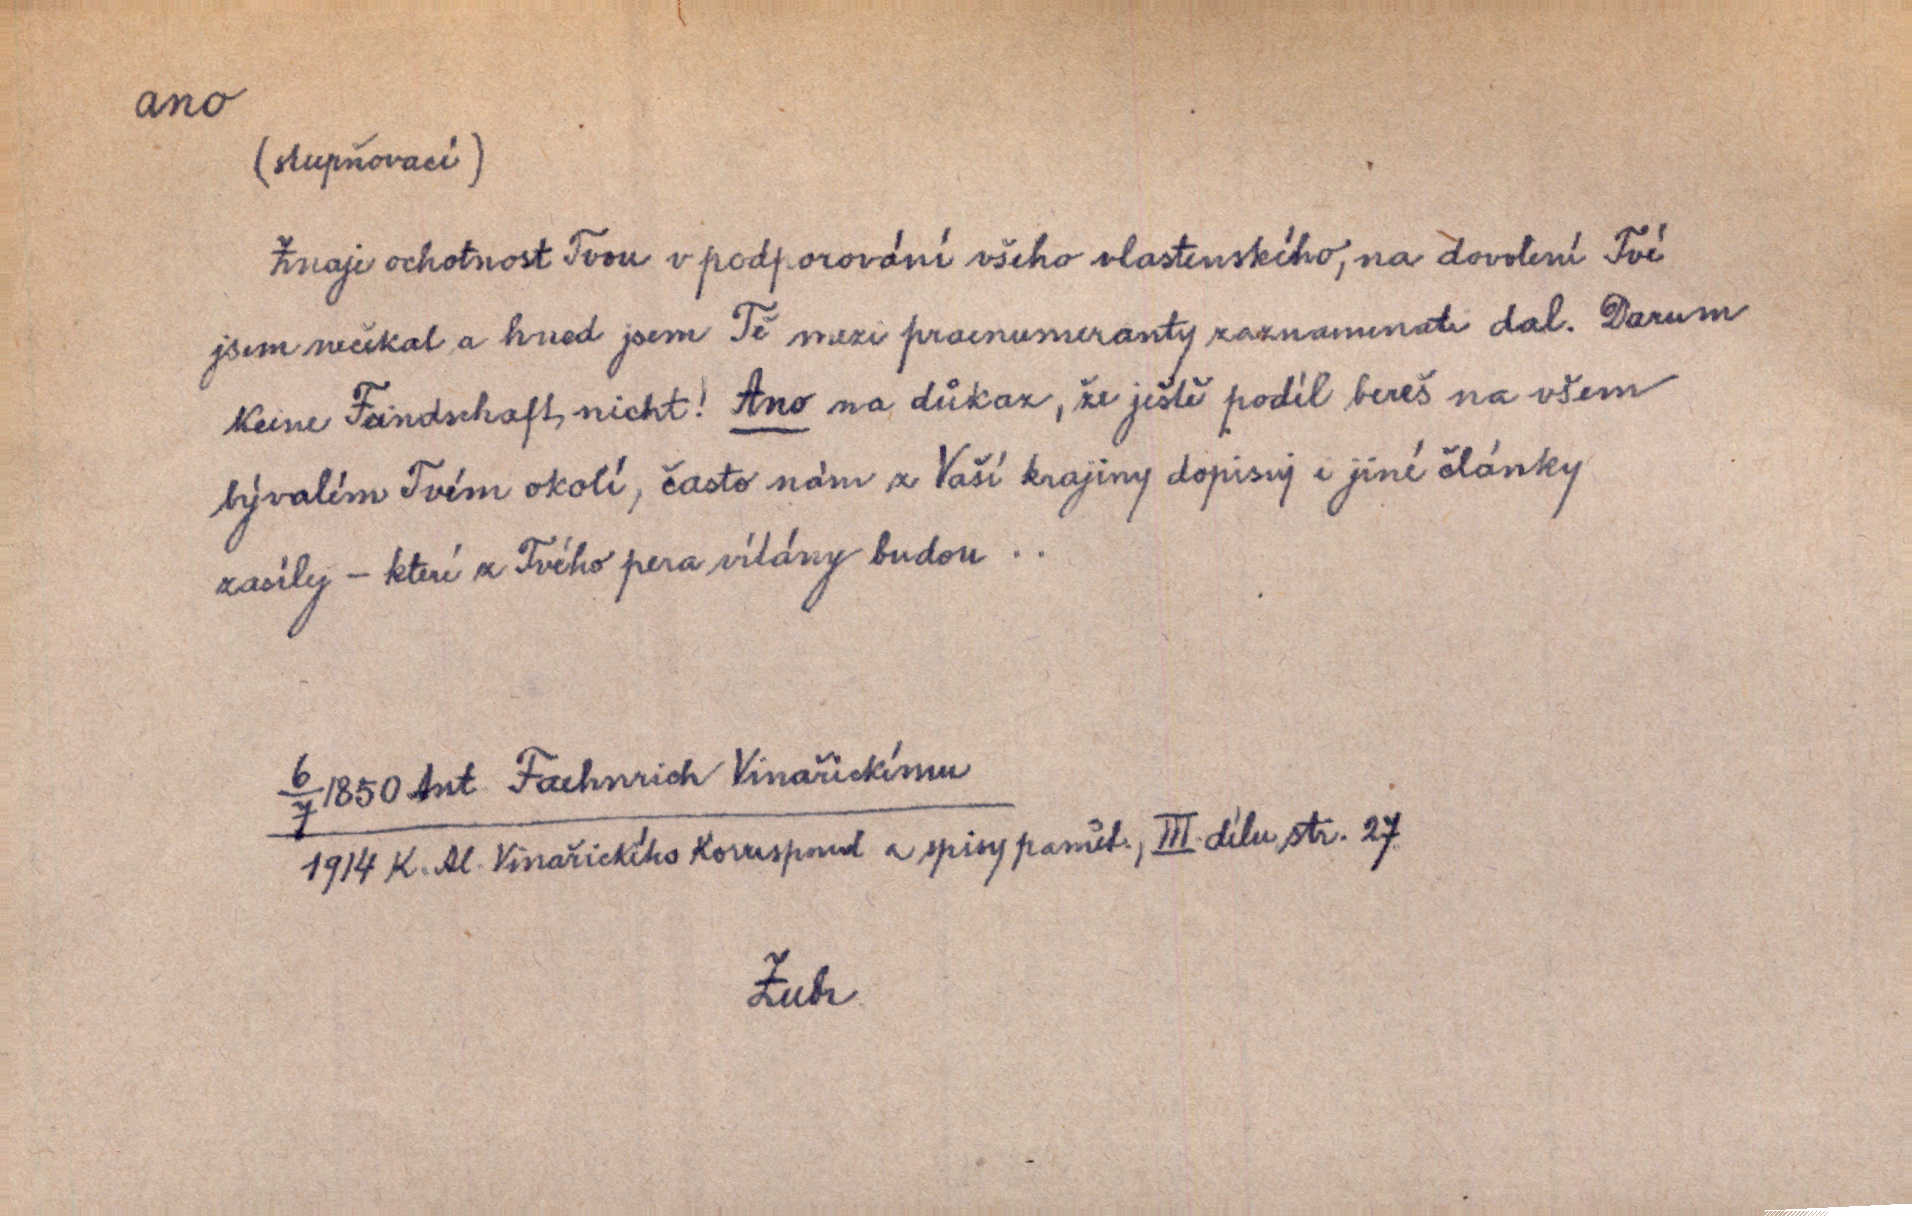 ano
(stupňovací)
Znaje ochotnost Tvou v podporování všeho vlastenského, na dovolení Tvé
jsem nečekal a hned jsem Tě mezi praenumeranty zaznamenati dal. Darum
keine Feindschaft, nicht! Ano na důkaz, že ještě podíl bereš na všem
bývalém Tvém okolí, často nám z Vaší krajiny dopisy i jiné články
zasílej – které z Tvého pera vítány budou ..
6/7 1850 Ant Faehnrich Vinařickému
1914 K. Al. Vinařického Korrespond a spisy pamět., III. dílu, str. 27
Žubr